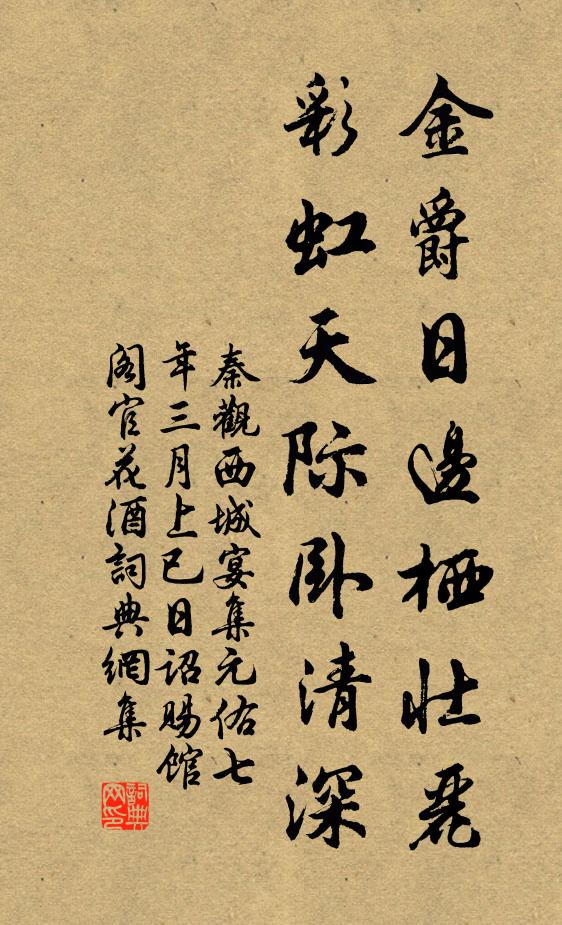 金爵日邊栖壮麗
彩虹天际卧清深
秦觀西城宴集元佑七
年三月上巳日诏赐馆
阁官花酒詞典網集
詞典
网印